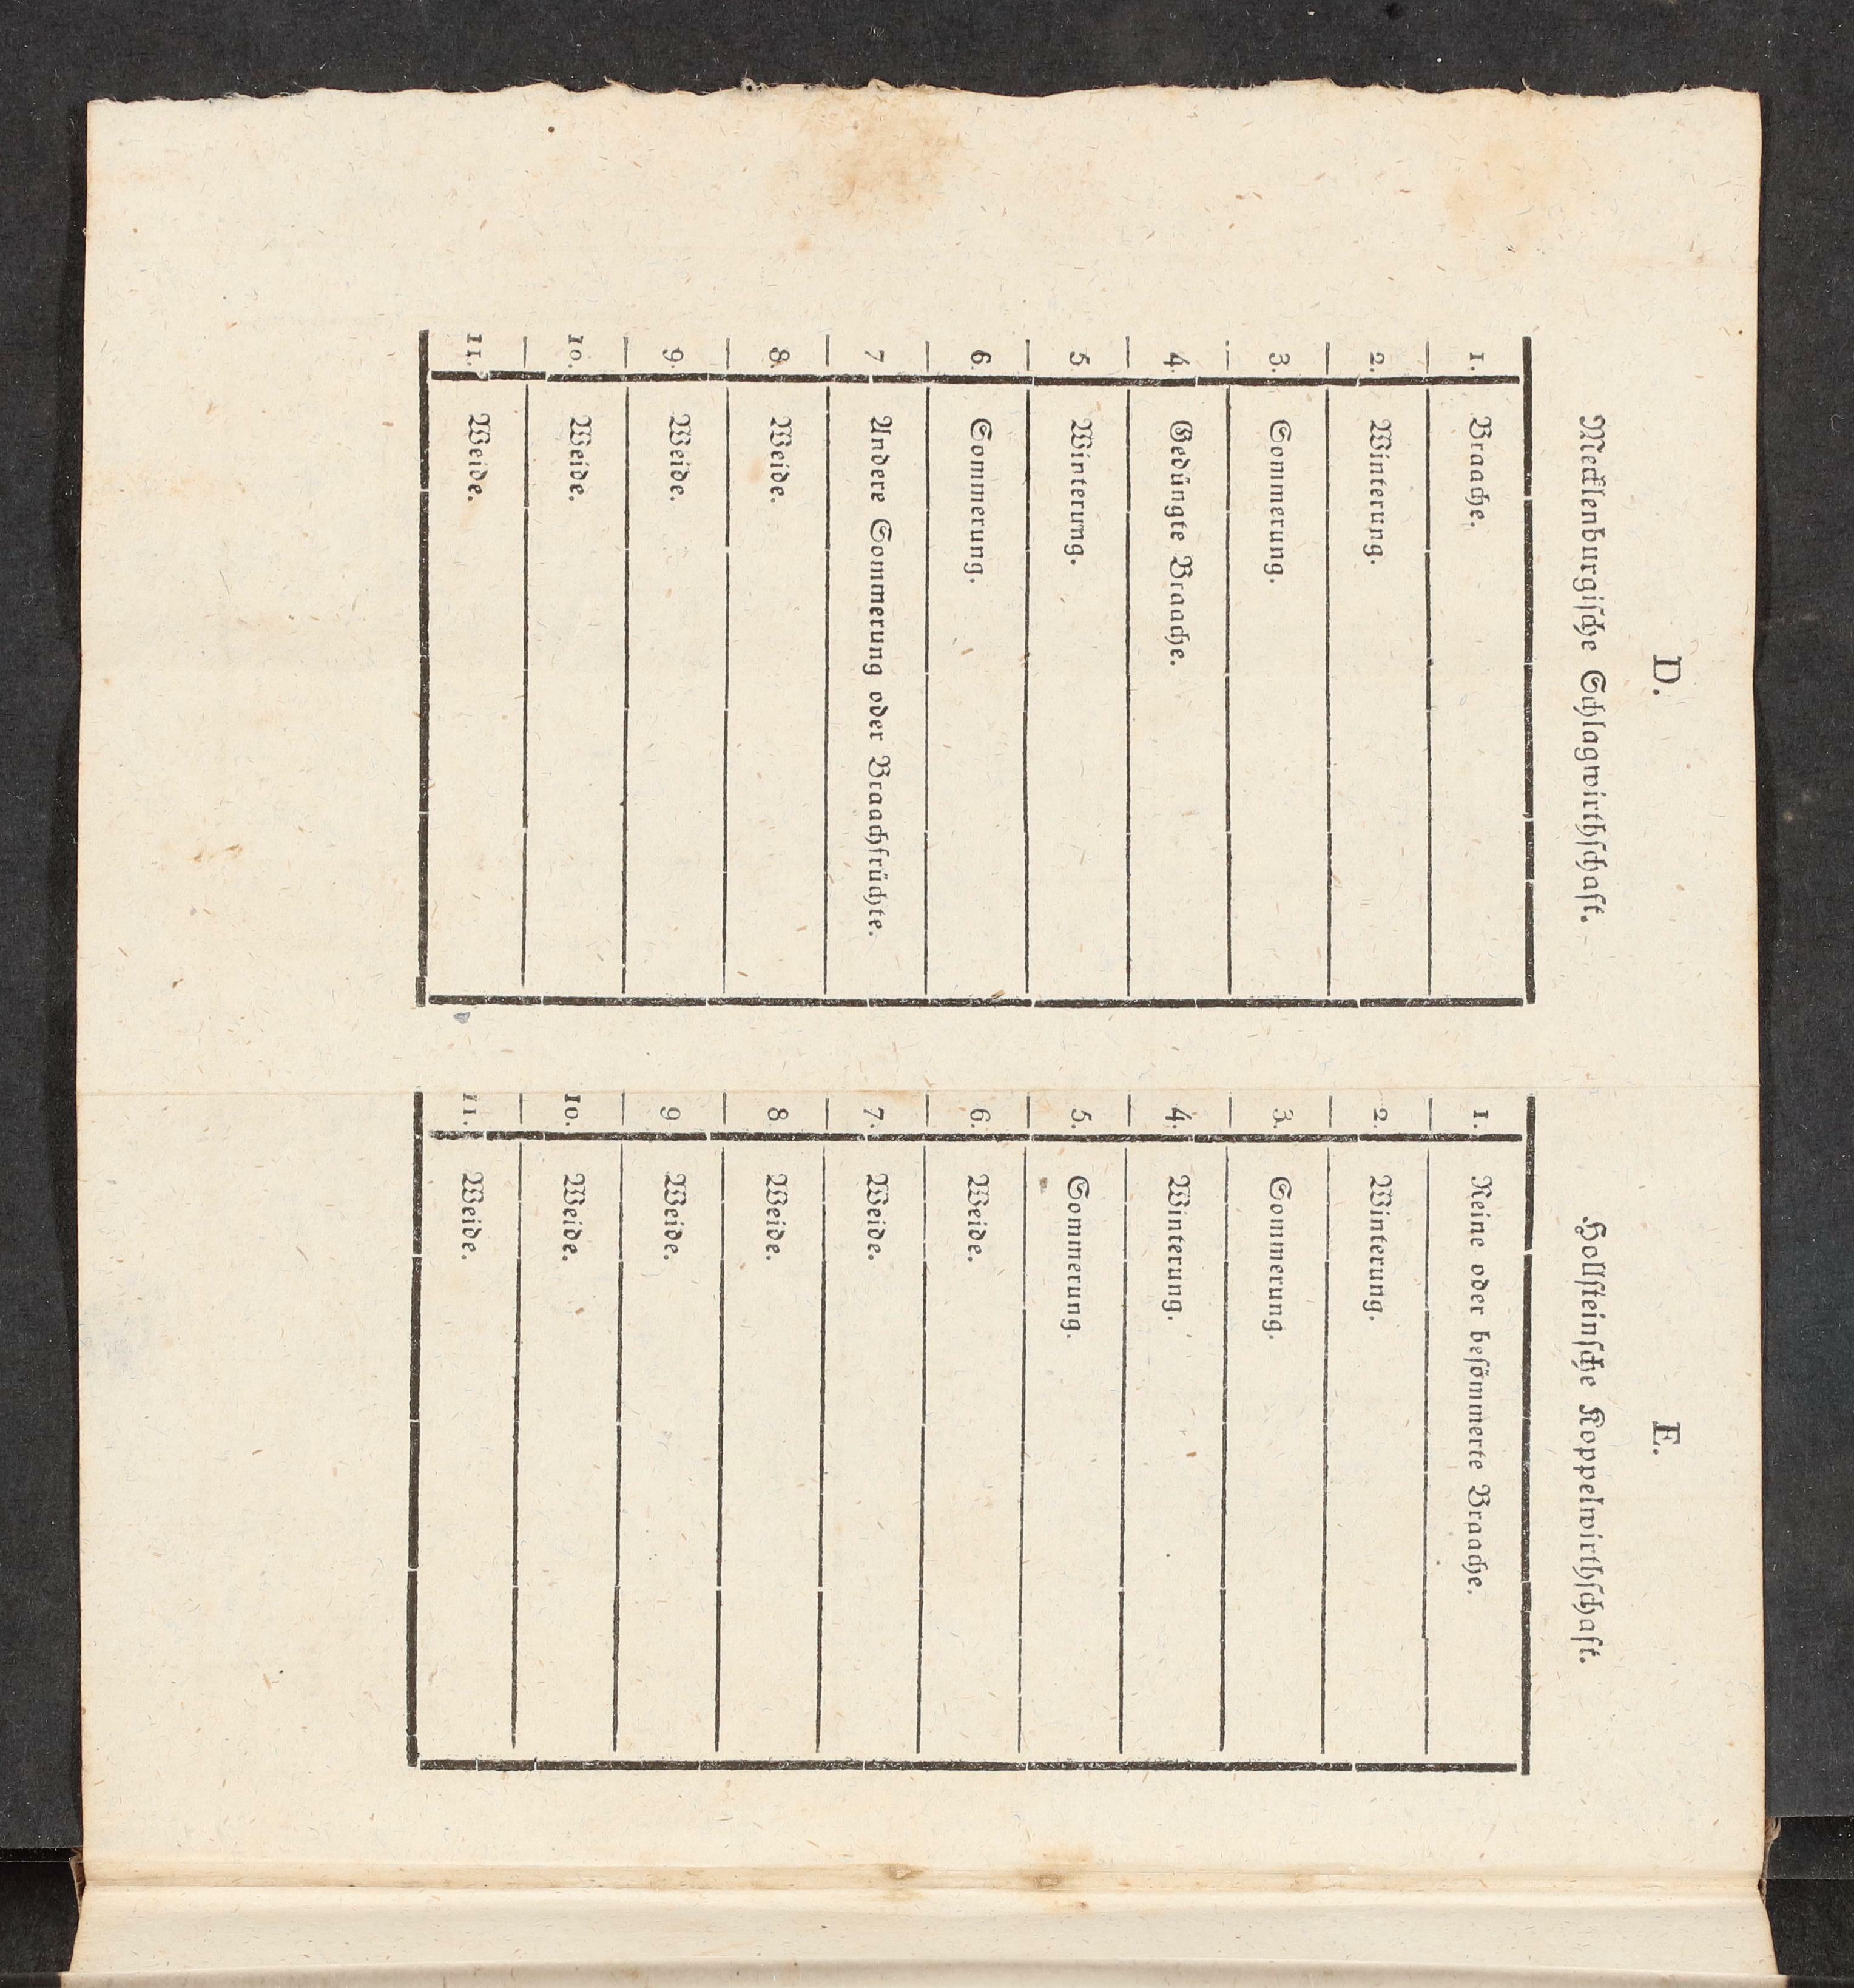 D.
Mecklenburgische Schlagwirthschaft.
1. Braache.
2. Winterung.
3. Sommerung.
4. Gedüngte Braache.
5. Winterung.
6. Sommerung.
7 Andere Sommerung oder Braachfrüchte.
8. Weide.
9. Weide.
10. Weide.
11. Weide.
E.
Hollsteinsche Koppelwirthschaft.
1. Reine oder besömmerte Braache.
2. Winterung.
3. Sommerung.
4. Winterung.
5. Sommerung.
6. Weide.
7. Weide.
8 Weide.
9 Weide.
10. Weide.
11. Weide.